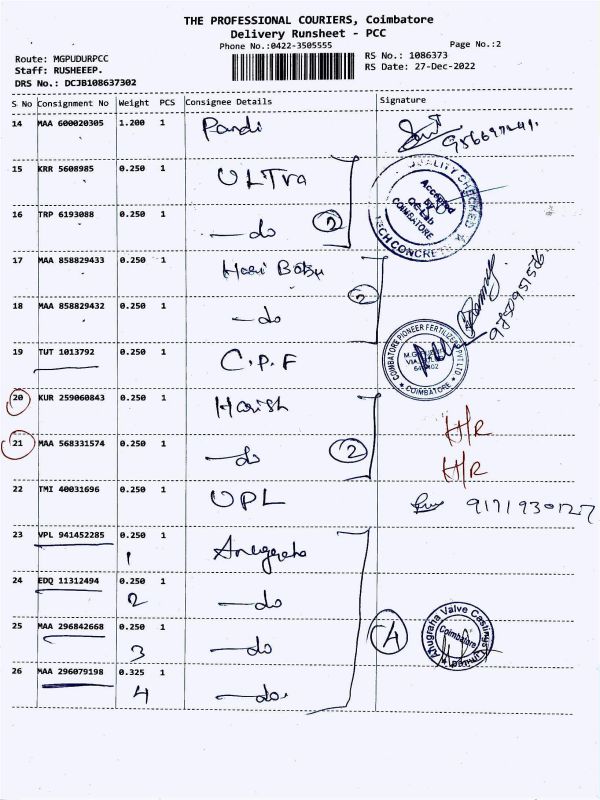 THE PROFESSIONAL COURIERS, Coimbatore
Delivery Runsheet - PCC
Phone No.:0422-3505555
Page No.:2
Route: MGPUDURPCC
RS No.: 1086373
Staff: RUSHEEEP.
RS Date: 27-Dec-2022
DRS No.: DCJB108637302
S No Consignment No Weight PCS Consignee Details Signature
14 MAA 600020305 1.200 1 Pandi
15 KRR 5608985 0.250 1 ULTra
QUALITY CHECKED
Accepted
by
QC-Lab
COIMBATORE
TECH CONCRETE
16 TRP 6193088 0.250 1 —do 2
17 MAA 858829433 0.250 1 Hari Babu
18 MAA 858829432 0.250 1 —do 2
9750951576
19 TUT 1013792 0.250 1 C.P.F
COIMBATORE PIONEER FERTILIZERS PVT LTD
COIMBATORE
20 KUR 259060843 0.250 1 Harish H/R
21 MAA 568331574 0.250 1 —do 2 H/R
22 TMI 40031696 0.250 1 UPL 9171930127
23 VPL 941452285 0.250 1
1
24 EDQ 11312494 0.250 1 —do
2
25 MAA 296842668 0.250 1 —do 4
3
Anugraha Valve Castings Limited
Coimbatore
26 MAA 296079198 0.325 1 —do.
4